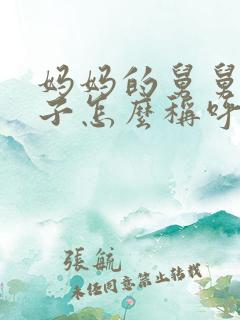 妈妈的舅舅
子怎麼稱呼
張毓
未经同意禁止转载